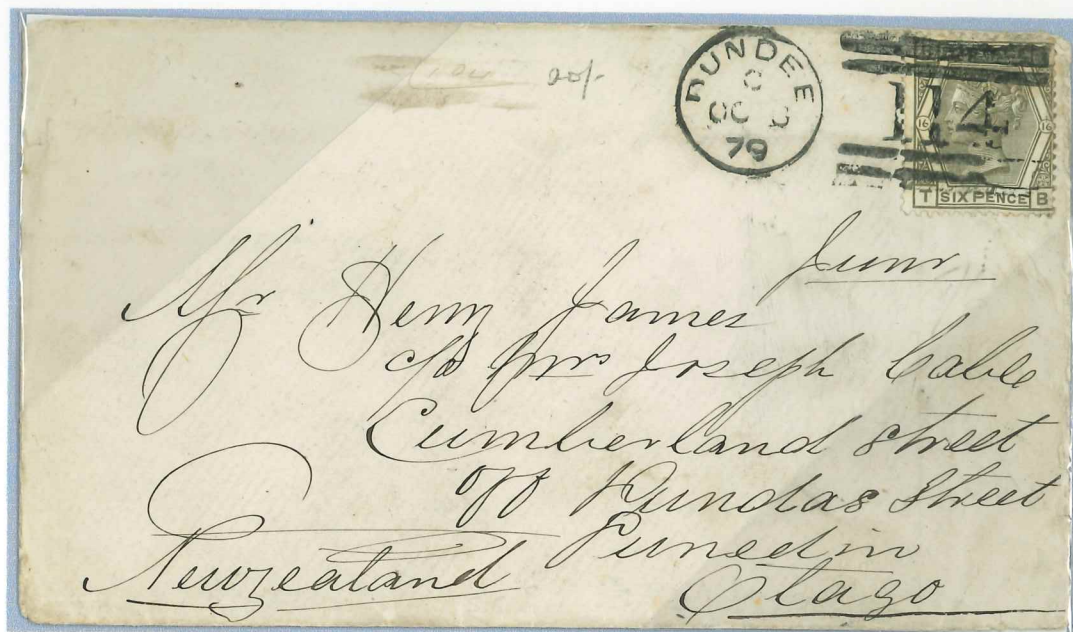 20/-
DUNDEE
C
OC
79
114
16 16
T SIX PENCE B
Junr
Mr Henry James
c/o Mrs Joseph Cable
Cumberland Street
off Dundas Street
Dunedin
Otago
Newzealand